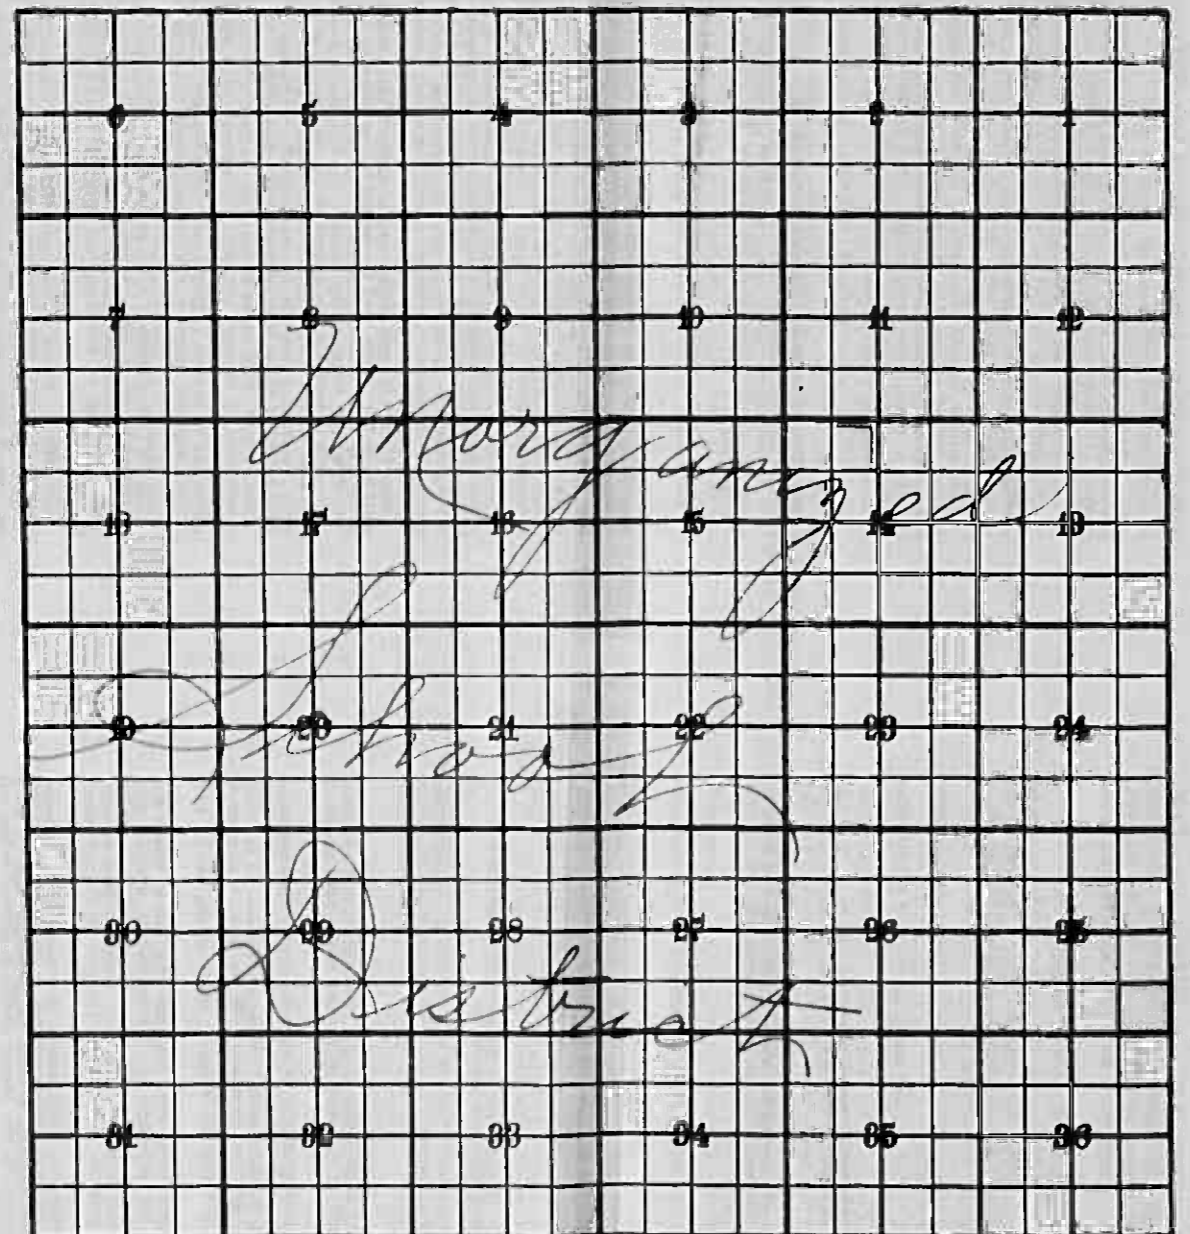 6 5 4 3 2 1
7 8 9 10 11 12
Unorganized
18 17 16 15 14 13
School
19 20 21 22 23 24
District
30 29 28 27 26 25
31 32 33 34 35 36